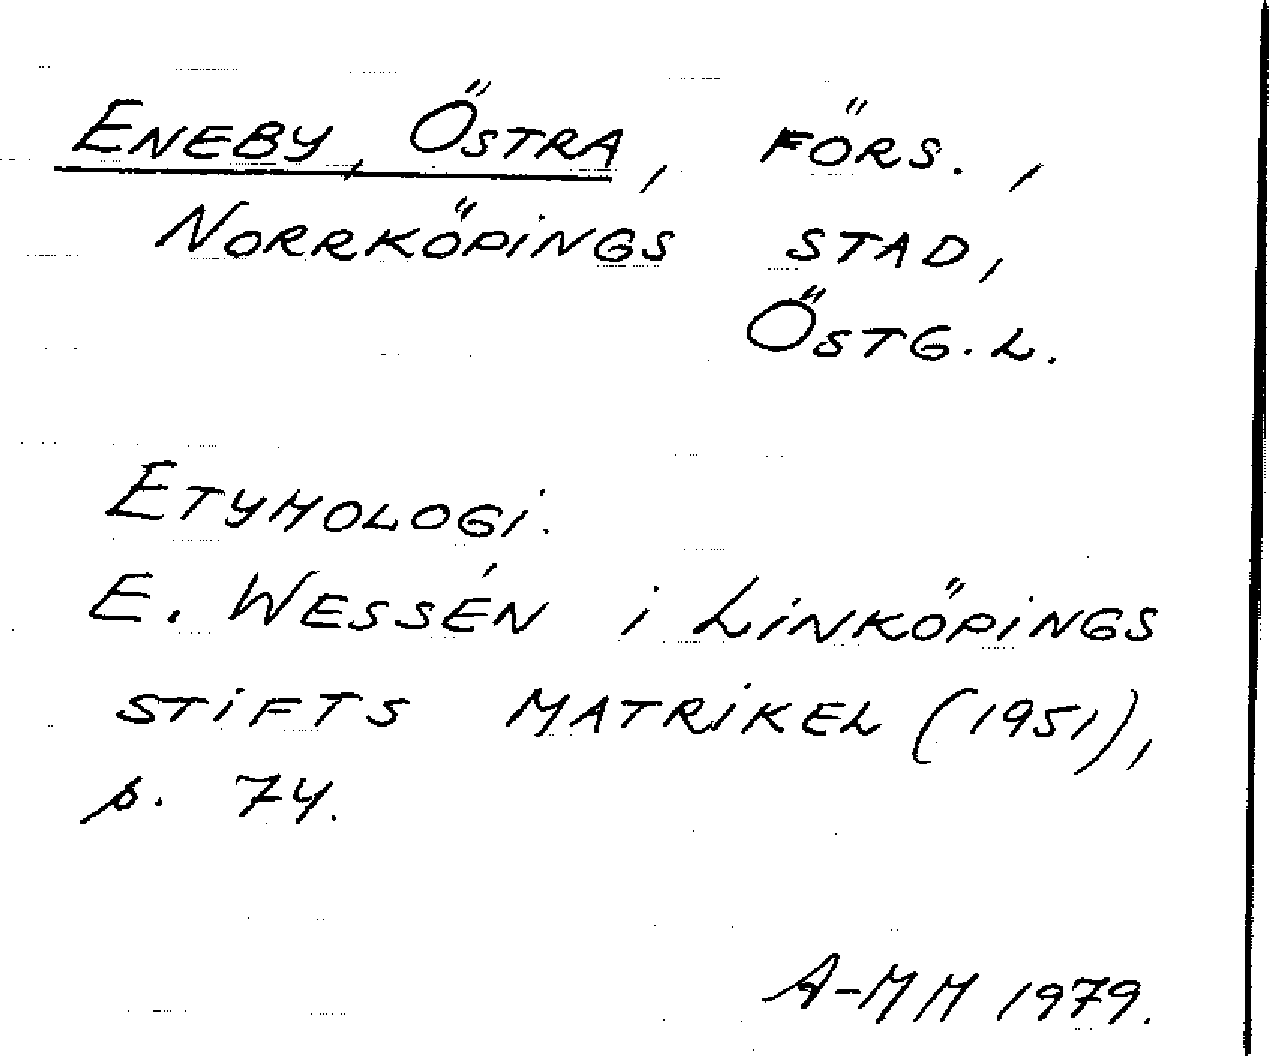 ENEBY, ÖSTRA, FÖRS.,
NORRKÖPINGS STAD,
ÖSTG.L.
ETYMOLOGI.
E. WESSÉN i LINKÖPINGS
STIFTS MATRIKEL (1951),
p. 74.
A-MM 1979.